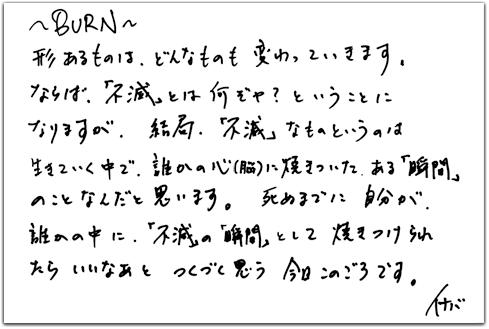 ～BURN～
形あるものは、どんなものも変わっていきます。
ならば、「不滅」とは何ぞや？ということに
なりますが、結局、「不滅」なものというのは
生きていく中で、誰かの心(脳)に焼きついた、ある「瞬間」
のことなんだと思います。死ぬまでに自分が、
誰かの中に、「不滅」の「瞬間」として焼きつけられ
たらいいなあと つくづく思う 今日このごろです。
イナバ